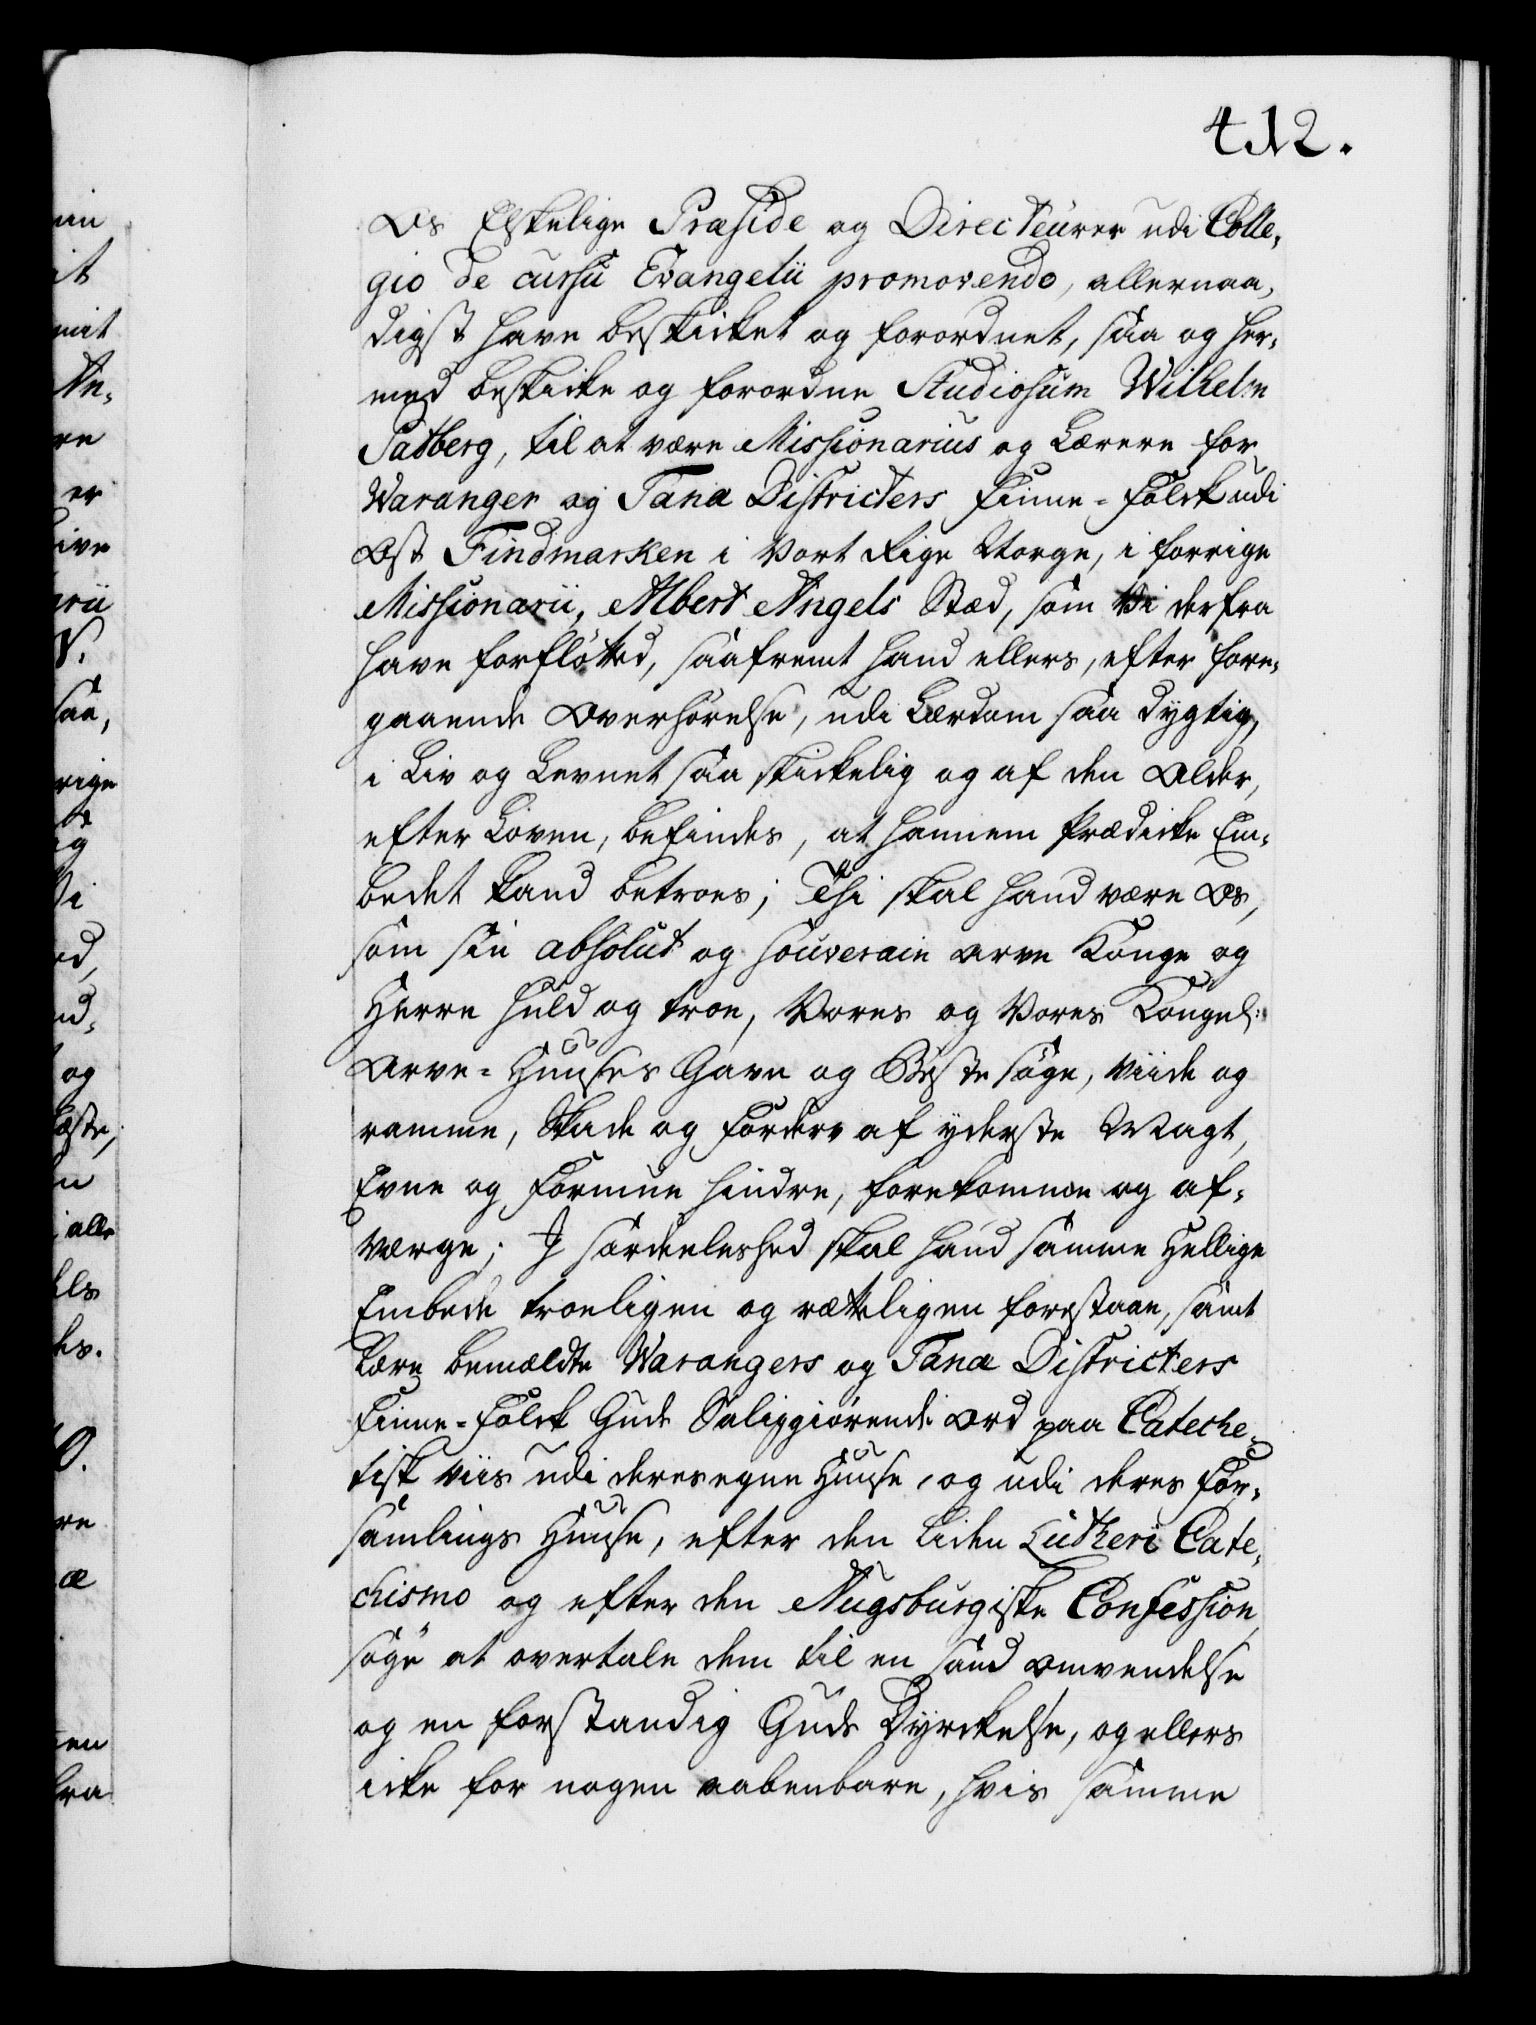 412.
Os Elskelige Præside og Directeürer udi Colle,
gio de cursu Evangelii promovendo, allernaa,
digst have beskicket og forordnet, saa og her,
med beskicke og forordne Studiosum Wilhelm
Patberg, til at være Missionarius og Lærere for
Waranger og Tana Districters Finne-Folck udi
Ost Findmarken i Vort Rige Norge, i forrige
Missionarii, Albert Angels Stæd, som Vi derfra
have forflötted, saafremt hand ellers, efter fore,
gaaende Overhörelse, udi Lærdom saa dygtig,
i Liv og Levnet saa skickelig og af den Alder,
efter Loven, befindes, at hannem Prædicke Em,
bedet kand betroes; Thi skal hand være Os,
som sin absolut og souverain Arve Konge og
Herre huld og troe, Vores og Vores Kongel:
Arve-Huuses Gavn og Beste söge, viide og
ramme, Skade og Forderv af yderste Magt,
Evne og Formue hindre, forekomme og af,
værge; J særdeeleshed skal hand samme Hellige
Embede troeligen og rætteligen forestaae, samt
lære bemældte Warangers og Tana Districters
Finne-Folck Guds Saliggiörende Ord paa Cateche,
tisk viis udi deres egne Huuse, og udi deres For,
samlings Huuse, efter den liden Lutheri Cate,
chismo og efter den Augsburgiske Confession,
söge at overtale dem til en sand Omvendelse
og en forstandig Guds Dyrckelse, og ellers
icke for nogen aabenbare, hvis samme